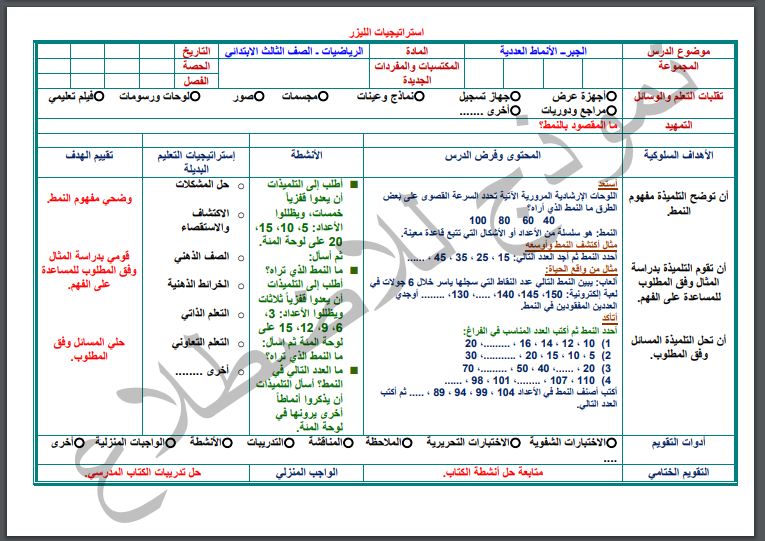 استراتيجيات الليزر
موضوع الدرس
الجبر – الأنماط العددية
المادة
الرياضيات - الصف الثالث الابتدائي
التاريخ
المجموعة
المكتسبات والمفردات
الجديدة
الحصة
الفصل
تقليات التعلم والوسائل
أجهزة عرض
جهاز تسجيل
نماذج وعينات
مجسمات
صور
لوحات ورسومات
فيلم تعليمي
مراجع ودوريات
أخرى .......
التمهيد
ما المقصود بالنمط؟
الأهداف السلوكية
المحتوى وفرض الدرس
الأنشطة
إستراتيجيات التعليم
البديلة
تقييم الهدف
أن توضح التلميذة مفهوم
النمط.
أن تقوم التلميذة بدراسة
المثال وفق المطلوب
للمساعدة على الفهم.
أن تحل التلميذة المسائل
وفق المطلوب.
أستعد
اللوحات الإرشادية المرورية الآتية تحدد السرعة القصوى على بعض
الطرق ما النمط الذي أراه؟
40 60 80 100
النمط: هو سلسلة من الأعداد أو الأشكال التي تتبع قاعدة معينة.
مثال أكتشف النمط وأوسعه
أحدد النمط ثم أجد العدد التالي: 15 ، 25 ، 35 ، 45 ، ......
مثال من واقع الحياة:
ألعاب: يبين النمط التالي عدد النقاط التي سجلها ياسر خلال 6 جولات في
لعبة إلكترونية: 150، 145، 140، .....، 130، ........ أوجدي
العددين المفقودين في النمط.
أتأكد
أحدد النمط ثم أكتب العدد المناسب في الفراغ:
1) 10 ، 12 ، 14 ، 16 ، .........، 20
2) 5 ، 10 ، 15 ، 20 ، ...........، 30
3) 20 ، ......، 40 ، 50 ، ........، 70
4) 110 ، 107 ، ........، 101 ، 98 ، ......
أكتب أصنف النمط في الأعداد 104 ، 99 ، 94 ، 89 ، ..... ثم أكتب
العدد التالي.
أطلب إلى التلميذات
أن يعدوا قفزياً
خمسات، ويظللوا
الأعداد: 5، 10، 15،
20 على لوحة المئة.
ثم أسأل:
ما النمط الذي تراه؟
أطلب إلى التلميذات
أن يعدوا قفزياً ثلاثات
ويظللوا الأعداد: 3،
6، 9، 12، 15 على
لوحة المئة ثم أسأل:
ما النمط الذي تراه؟
ما العدد التالي في
النمط؟ أسأل التلميذات
أن يذكروا أنماطاً
أخرى يرونها في
لوحة المئة.
حل المشكلات
الاكتشاف
والاستقصاء
الصف الذهني
الخرائط الذهنية
التعلم الذاتي
التعلم التعاوني
أخرى ........
وضحي مفهوم النمط.
قومي بدراسة المثال
وفق المطلوب للمساعدة
على الفهم.
حلي المسائل وفق
المطلوب.
أدوات التقويم
الاختبارات الشفوية
الاختبارات التحريرية
الملاحظة
المناقشة
التدريبات
الأنشطة
الواجبات المنزلية
أخرى
....
التقويم الختامي
متابعة حل أنشطة الكتاب.
الواجب المنزلي
حل تدريبات الكتاب المدرسي.
نموذج للاطلاع